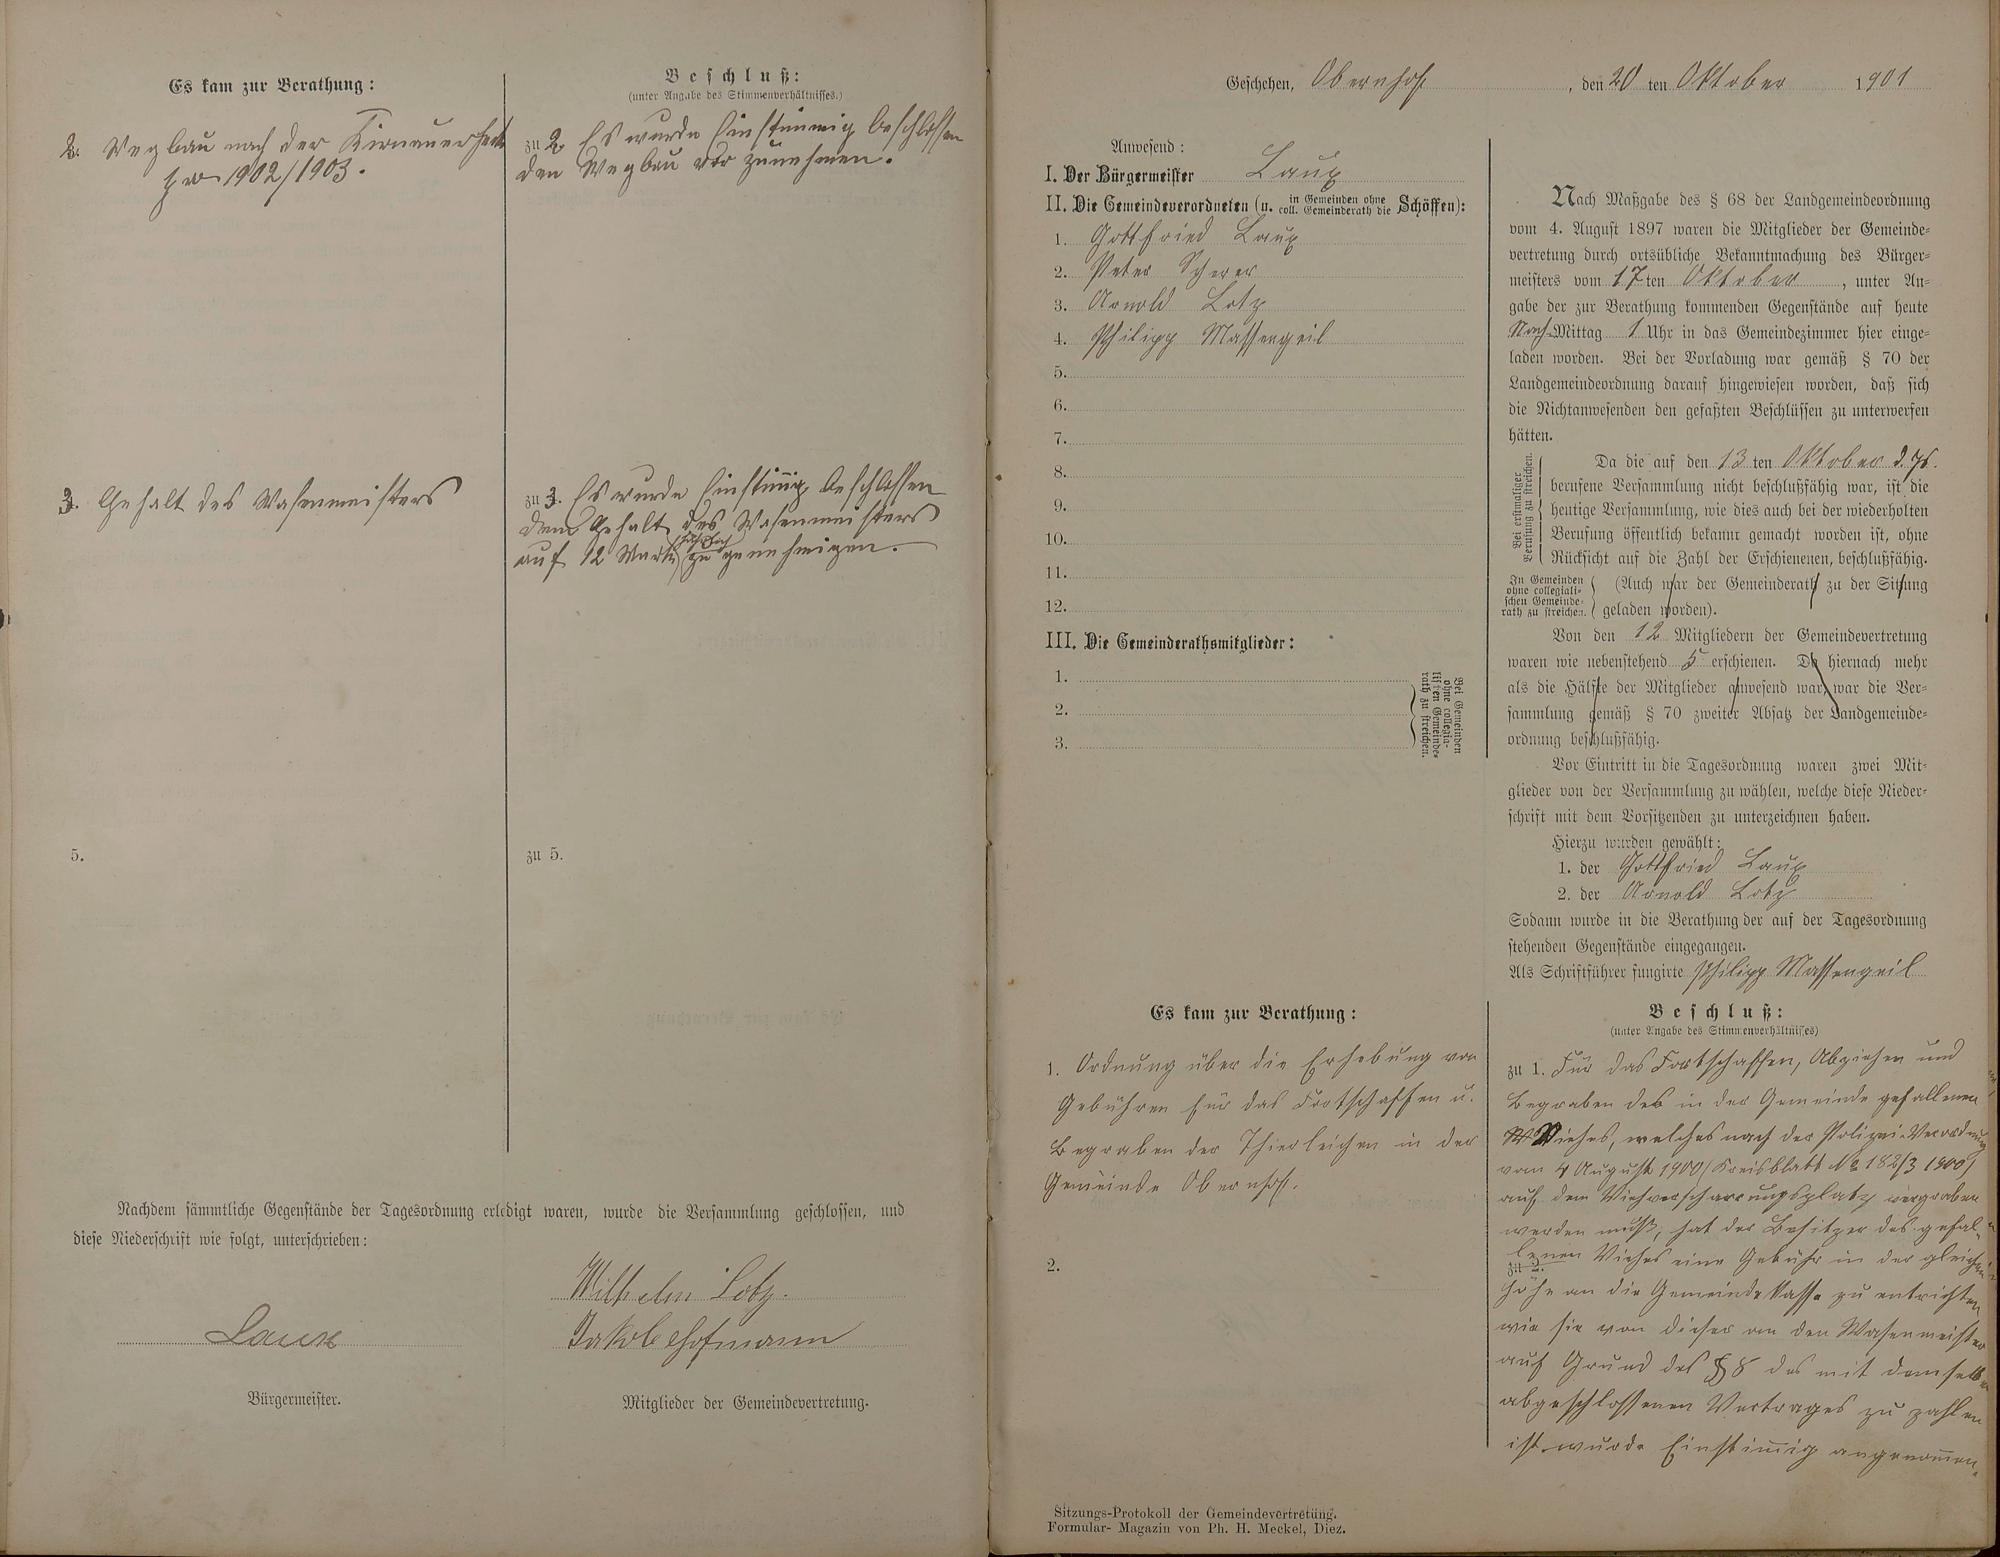 Es kam zur Berathung:
2. Wegbau nach der Kirnauerheck
pro 1902/1903.
3. Gehalt des Wasenmeisters
5.
Beschluß:
(unter Angabe des Stimmenverhältnisses.)
zu 2. Es wurde Einstimmig beschlossen
den Wegbau vor zunehmen.
zu 3. Es wurde Einstimig beschlossen
dem Gehalt des Wasenmeisters
jährlich
auf 12 Mark zu genehmigen.
zu 5.
Nachdem sämmtliche Gegenstände der Tagesordnung erledigt waren, wurde die Versammlung geschlossen, und
diese Niederschrift wie folgt, unterschrieben:
Wilhelm Lotz.
Laux
Jakob Hofmann
Bürgermeister.
Mitglieder der Gemeindevertretung.
Geschehen, Obernhof, den 20 ten Oktober 1901
Anwesend:
I. Der Bürgermeister Laux
II. Die Gemeindeverordneten (u. in Gemeinden ohne coll. Gemeinderath die Schöffen):
1. Gottfried Laux
2. Peter Scherer
3. Arnold Lotz
4. Philipp Massengeil
5.
6.
7.
8.
9.
10.
11.
12.
III. Die Gemeinderathsmitglieder:
1.
2.
3.
Bei Gemeinden
ohne collegia-
lischen Gemeinde-
rath zu streichen.
Nach Maßgabe des § 68 der Landgemeindeordnung
vom 4. August 1897 waren die Mitglieder der Gemeinde-
vertretung durch ortsübliche Bekanntmachung des Bürger-
meisters vom 17ten Oktober, unter An-
gabe der zur Berathung kommenden Gegenstände auf heute
Nach-Mittag 1 Uhr in das Gemeindezimmer hier einge-
laden worden. Bei der Vorladung war gemäß § 70 der
Landgemeindeordnung darauf hingewiesen worden, daß sich
die Nichtanwesenden den gefaßten Beschlüssen zu unterwerfen
hätten.
Bei erstmaliger
Berufung zu streichen.
Da die auf den 13 ten Oktober d. Js.
berufene Versammlung nicht beschlußfähig war, ist die
heutige Versammlung, wie dies auch bei der wiederholten
Berufung öffentlich bekannt gemacht worden ist, ohne
Rücksicht auf die Zahl der Erschienenen, beschlußfähig.
In Gemeinden
ohne collegiali-
schen Gemeinde-
rath zu streichen.
(Auch war der Gemeinderath zu der Sitzung
geladen worden).
Von den 12 Mitgliedern der Gemeindevertretung
waren wie nebenstehend 5 erschienen. Da hiernach mehr
als die Hälfte der Mitglieder anwesend war, war die Ver-
sammlung gemäß § 70 zweiter Absatz der Landgemeinde-
ordnung beschlußfähig.
Vor Eintritt in die Tagesordnung waren zwei Mit-
glieder von der Versammlung zu wählen, welche diese Nieder-
schrift mit dem Vorsitzenden zu unterzeichnen haben.
Hierzu wurden gewählt:
1. der Gottfried Laux
2. der Arnold Lotz
Sodann wurde in die Berathung der auf der Tagesordnung
stehenden Gegenstände eingegangen.
Als Schriftführer fungirte Philipp Massengeil
Es kam zur Berathung:
1. Ordnung über die Erhebung von
Gebühren für das Fortschaffen u.
Begraben der Thierleichen in der
Gemeinde Obernhof.
2.
Beschluß:
(unter Angabe des Stimmenverhältnisses)
zu 1. Für das Fortschaffen, Abziehen und
Begraben des in der Gemeinde gefallenen
Viehes, welches nach der Polizei-Verordnung
vom 4 August 1900 (Kreisblatt No 182/3 1900)
auf dem Viehverscharrungsplatz vergraben
werden muß, hat der Besitzer des gefal-
lenen Viehes eine Gebühr in der gleichen
zu 2.
Höhe an die Gemeindekasse zu entrichten
wie sie von dieser an den Wasenmeister
auf Grund des § 8 des mit demselben
abgeschlossenen Vertrages zu zahlen
ist wurde Einstimig angenommen.
Sitzungs-Protokoll der Gemeindevertretung.
Formular-Magazin von Ph. H. Meckel, Diez.